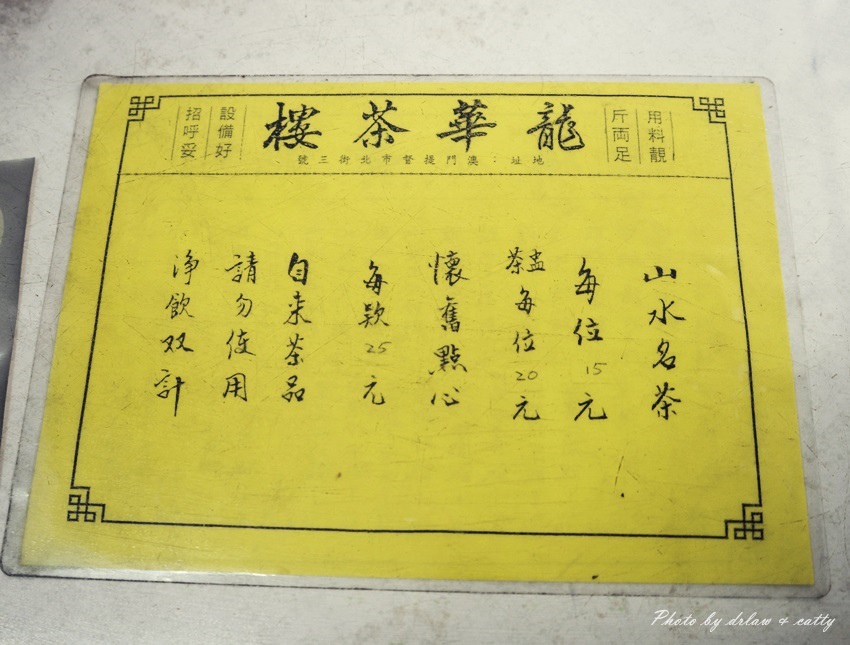 用料靚
斤両足
龍華茶樓
地址：澳門提督市北街三號
設備好
招呼妥
山水名茶
每位15元
盅茶每位20元
懷舊點心
每款25元
自来茶品
請勿使用
净飲双計
Photo by drlaw & catty